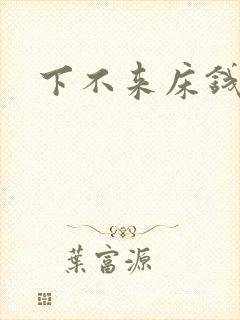 下不来床钱
葉富源